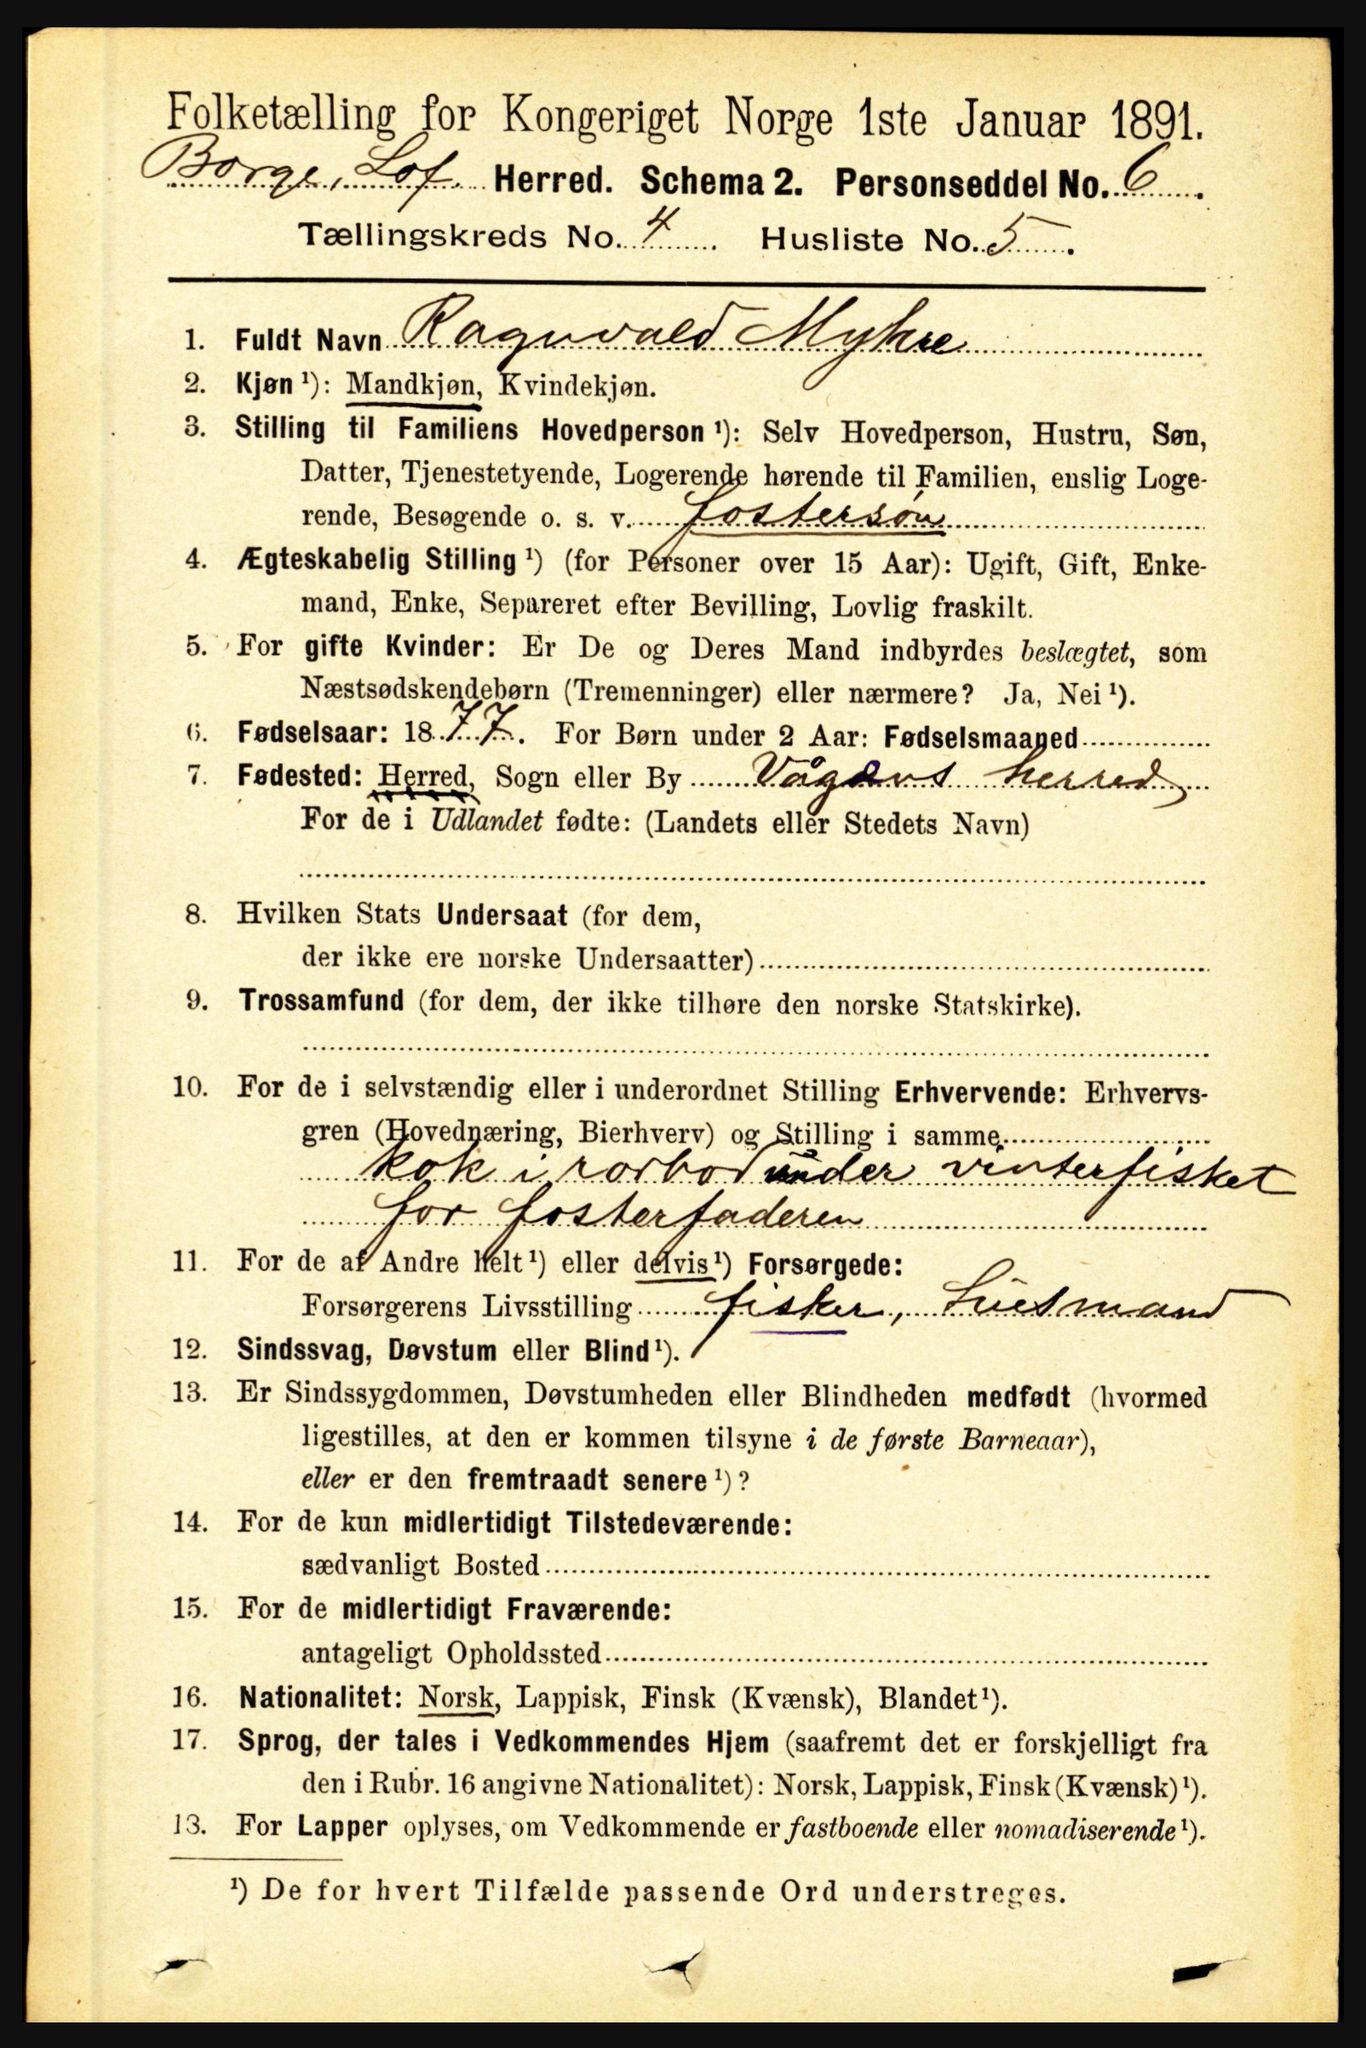 Folketælling for Kongeriget Norge 1ste Januar 1891.
Borge, Lof. Herred. Schema 2. Personseddel No. 6.
Tællingskreds No. 4. Husliste No. 5.
1. Fuldt Navn Ragnvald Myhre
2. Kjøn ¹): Mandkjøn, Kvindekjøn.
3. Stilling til Familiens Hovedperson ¹): Selv Hovedperson, Hustru, Søn,
Datter, Tjenestetyende, Logerende hørende til Familien, enslig Loge-
rende, Besøgende o. s. v. fostersøn
4. Ægteskabelig Stilling ¹) (for Personer over 15 Aar): Ugift, Gift, Enke-
mand, Enke, Separeret efter Bevilling, Lovlig fraskilt.
5. For gifte Kvinder: Er De og Deres Mand indbyrdes beslægtet, som
Næstsødskendebørn (Tremenninger) eller nærmere? Ja, Nei ¹).
6. Fødselsaar: 1877. For Børn under 2 Aar: Fødselsmaaned
7. Fødested: Herred, Sogn eller By Vågens herred
For de i Udlandet fødte: (Landets eller Stedets Navn)
8. Hvilken Stats Undersaat (for dem,
der ikke ere norske Undersaatter)
9. Trossamfund (for dem, der ikke tilhøre den norske Statskirke).
10. For de i selvstændig eller i underordnet Stilling Erhvervende: Erhvervs-
gren (Hovednæring, Bierhverv) og Stilling i samme
kok i rorbod under vinterfisket
for fosterfaderen
11. For de af Andre helt ¹) eller delvis ¹) Forsørgede:
Forsørgerens Livsstilling fisker, Inestmand
12. Sindssvag, Døvstum eller Blind ¹).
13. Er Sindssygdommen, Døvstumheden eller Blindheden medfødt (hvormed
ligestilles, at den er kommen tilsyne i de første Barneaar),
eller er den fremtraadt senere ¹)?
14. For de kun midlertidigt Tilstedeværende:
sædvanligt Bosted
15. For de midlertidigt Fraværende:
antageligt Opholdssted
16. Nationalitet: Norsk, Lappisk, Finsk (Kvænsk), Blandet ¹).
17. Sprog, der tales i Vedkommendes Hjem (saafremt det er forskjelligt fra
den i Rubr. 16 angivne Nationalitet): Norsk, Lappisk, Finsk (Kvænsk) ¹).
13. For Lapper oplyses, om Vedkommende er fastboende eller nomadiserende ¹).
¹) De for hvert Tilfælde passende Ord understreges.